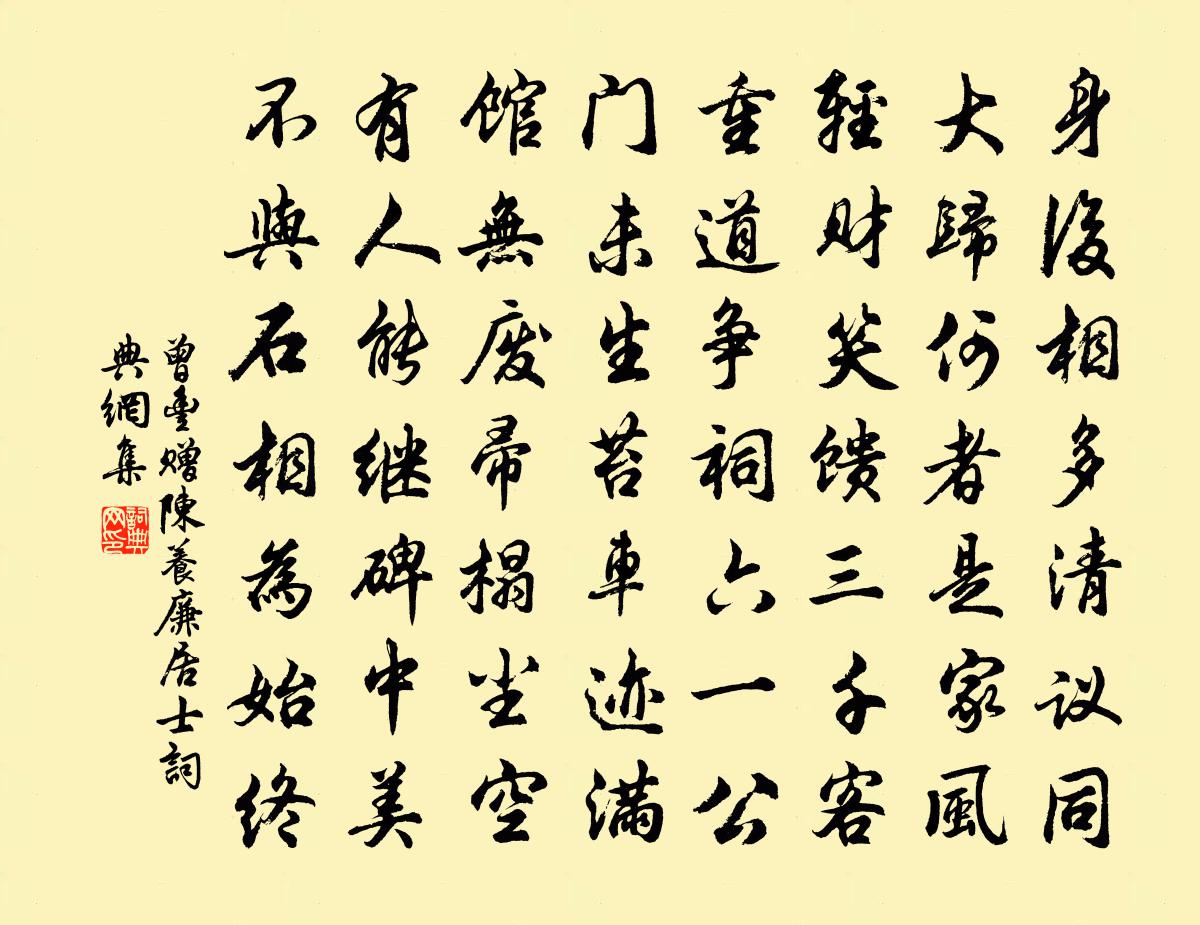 身後相多清议同
大歸何者是家風
輕财笑馈三千客
重道争祠六一公
门未生苔車迹满
馆無废帚榻尘空
有人能继碑中美
不與石相為始终
曾豊赠陳養廉居士詞
典網集
詞典
网印